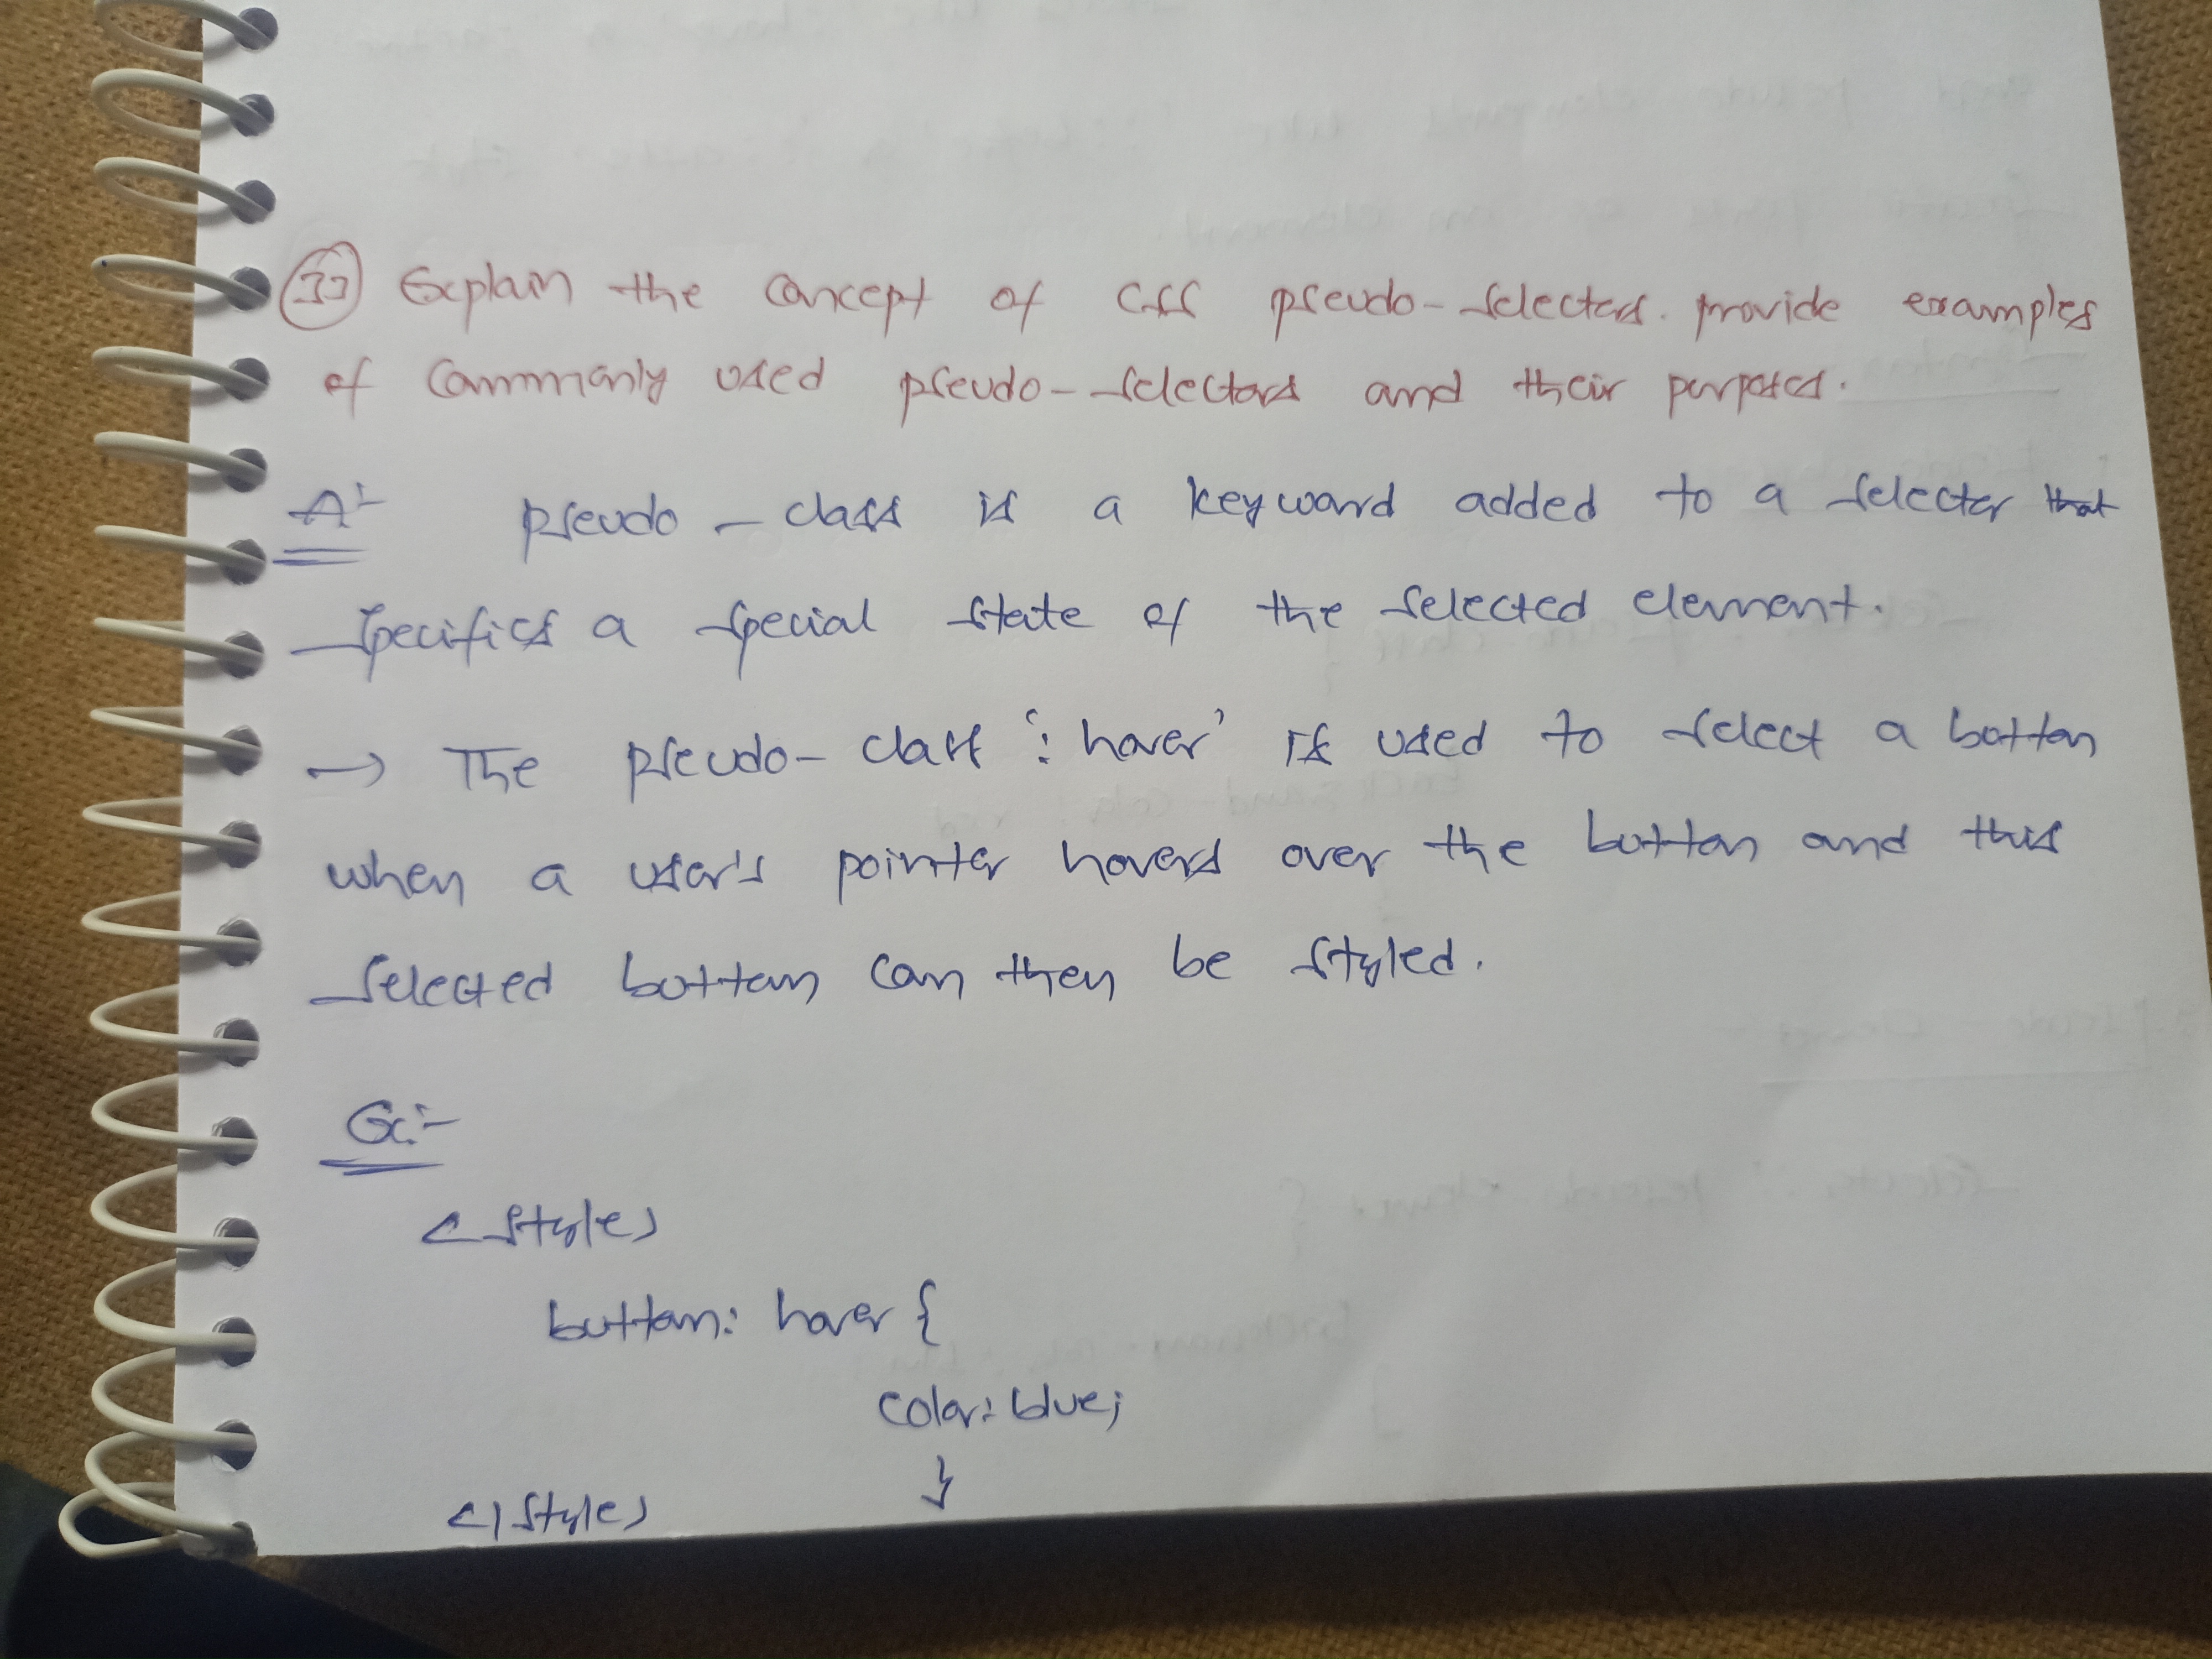 33 Explain the concept of CSS pseudo-selectors. provide examples
of commonly used pseudo-selectors and their purposes.
A:- pseudo-class is a keyword added to a selector that
specifies a special state of the selected element.
→ The pseudo-class ':hover' is used to select a button
when a user's pointer hovers over the button and this
selected button can then be styled.
Ex:-
<style>
button: hover {
color: blue;
}
</style>